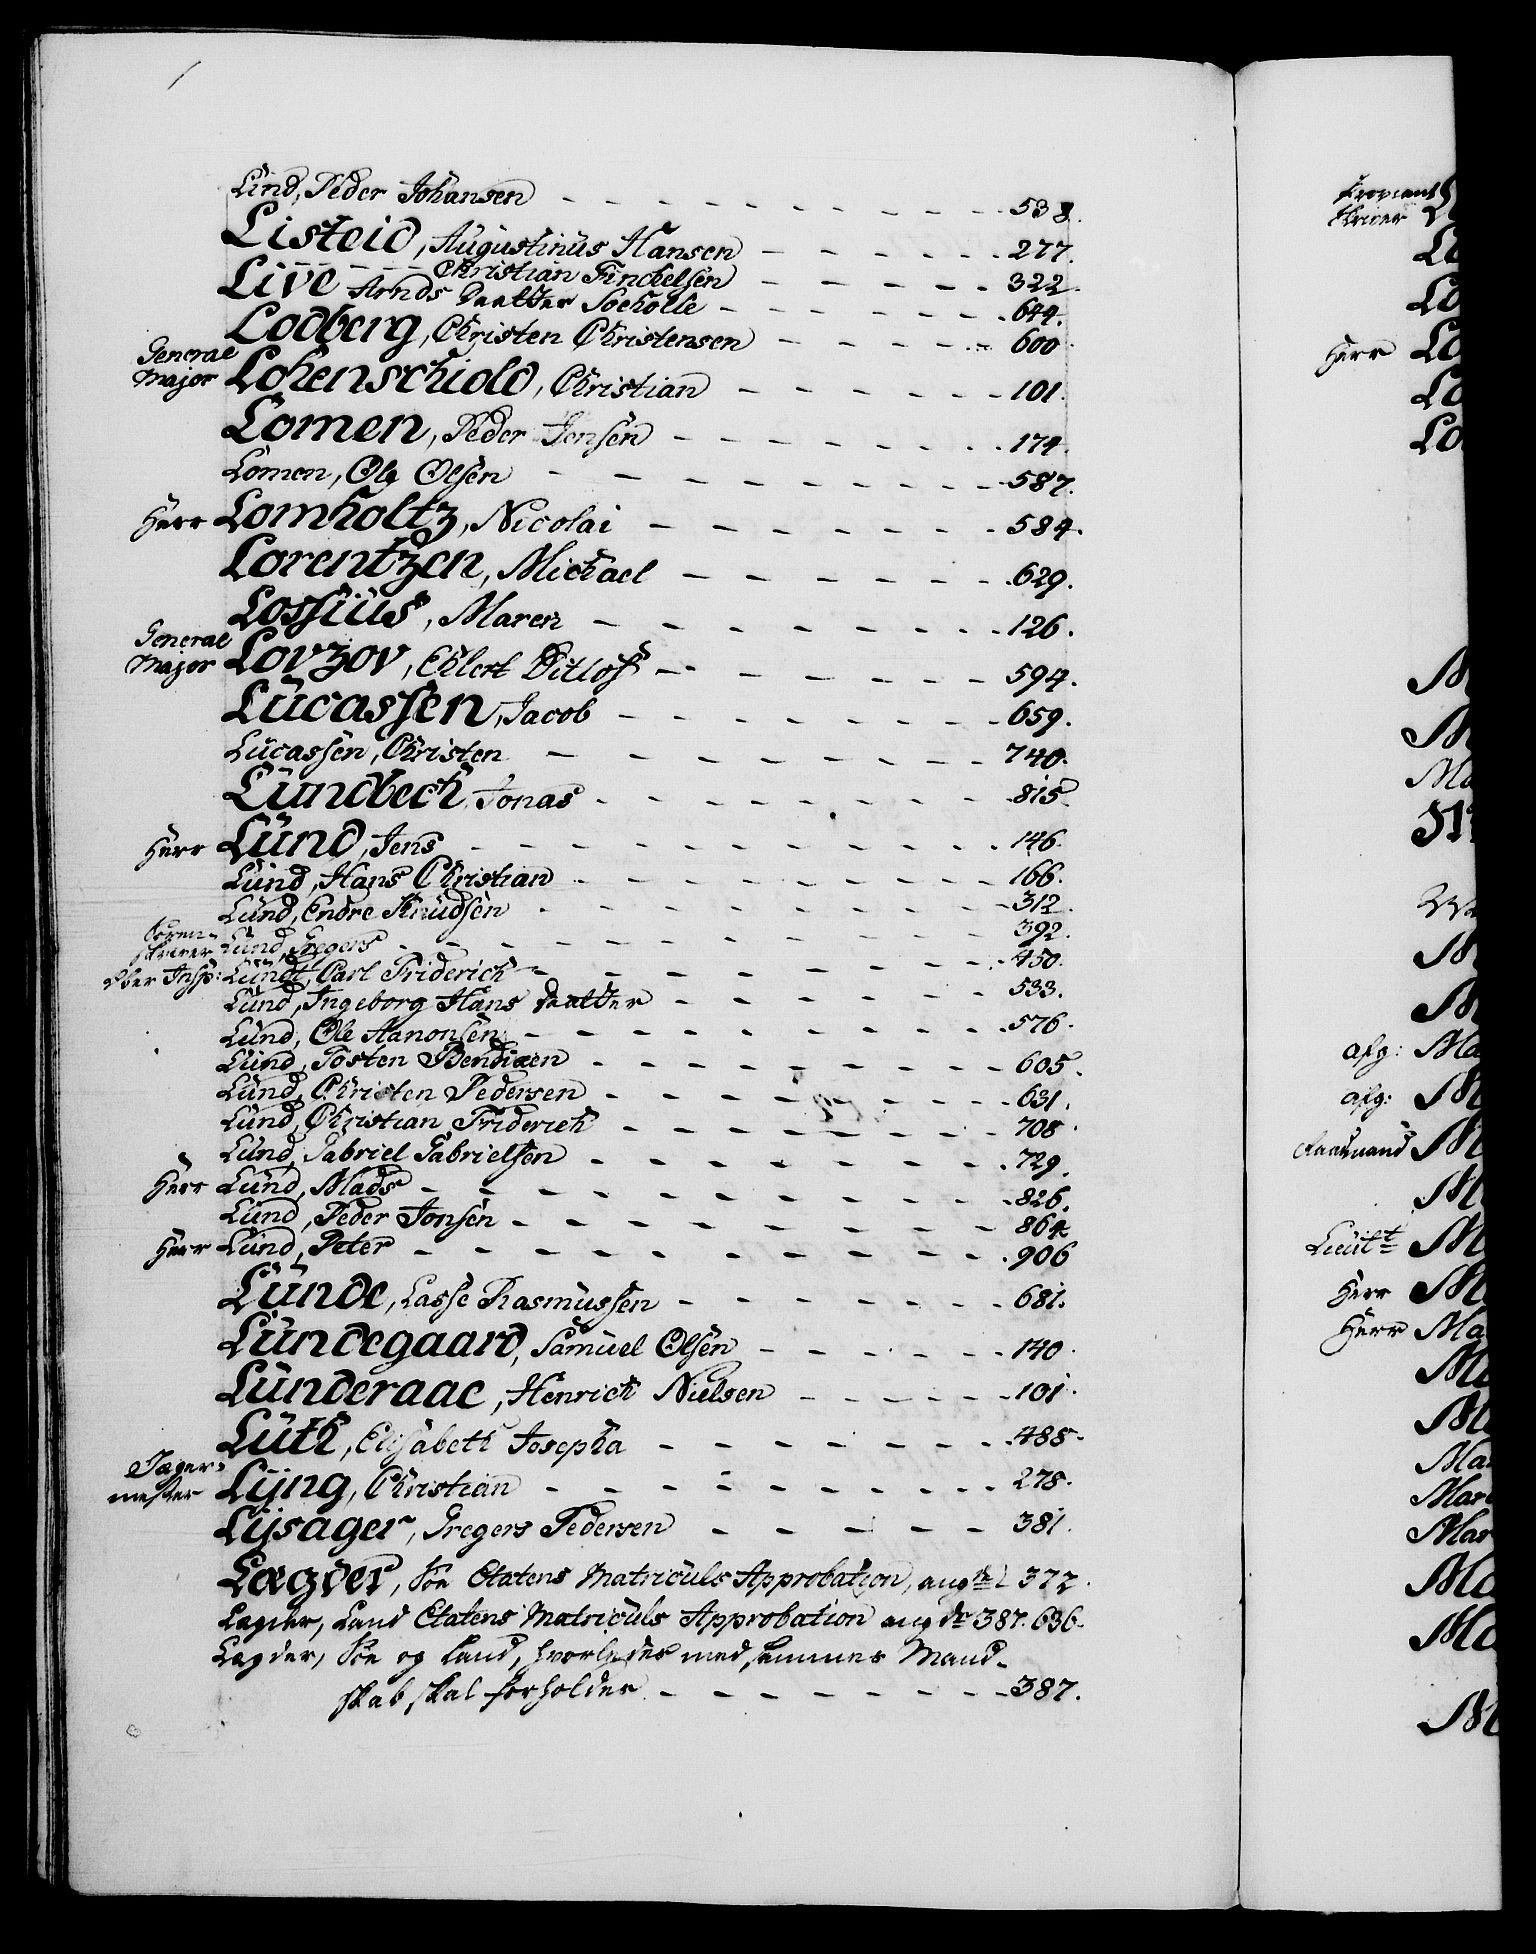 Lind, Peder Johansen - - - 538.
Listeid, Augustinus Hansen - - - 277.
- - - Christian Finckelsen - - - 322.
Live Arnds Daatter - - - 644.
Lodberg, Christen Christensen - - - 600.
General Major Lohenschiold, Christian - - - 101.
Lomen, Peder Jensen - - - 174.
Lomen, Ole Olsen - - - 587.
Herr Lomholtz, Nicolai - - - 584.
Lorentzen, Michael - - - 629.
Lossius, Maren - - - 126.
General Major Lovzov, Ehlert Ditlof - - - 594.
Lücassen, Jacob - - - 659.
Lücassen, Christen - - - 740.
Lündbech, Jonas - - - 815.
Herr Lünd, Jens - - - 146.
Lünd, Hans Christian - - - 166.
Lünd, Endre Knüdsen - - - 312.
Soren- skriver Lünd, Gregers - - - 392.
Ober Insp: Lündt, Carl Friderich - - - 450.
Lünd, Ingeborg Hans Daatter - - - 533.
Lünd, Ole Aanonsen - - - 576.
Lünd, Tosten Bendixen - - - 605.
Lünd, Christen Pedersen - - - 631.
Lünd, Christian Friderich - - - 708.
Lünd, Gabriel Gabrielsen - - - 729.
Herr Lünd, Mads - - - 826.
Lünd, Peder Jonsen - - - 864.
Herr Lünd, Peter - - - 906
Lünde, Lasse Rasmussen - - - 681.
Lündegaard, Samüel Olsen - - - 140.
Lünderaae, Henrich Nielsen - - - 101.
Lüth, Elisabeth Josepha - - - 488.
Jæger- mester Lÿng, Christian - - - 278.
Lÿsager, Gregers Pedersen - - - 381.
Lægder, Søe Etatens Matriculs Approbation, ang de 372.
Lægder, Land Etatens Matriculs Approbation ang de 387. 636.
Lægder, Søe og Land, hvorledes med sammes Mand-
skab skal forholdes - - - 387.
Proviant
Skriver
Herr
afg:
afg:
Raadmand
Lieutt
Herr
Herr